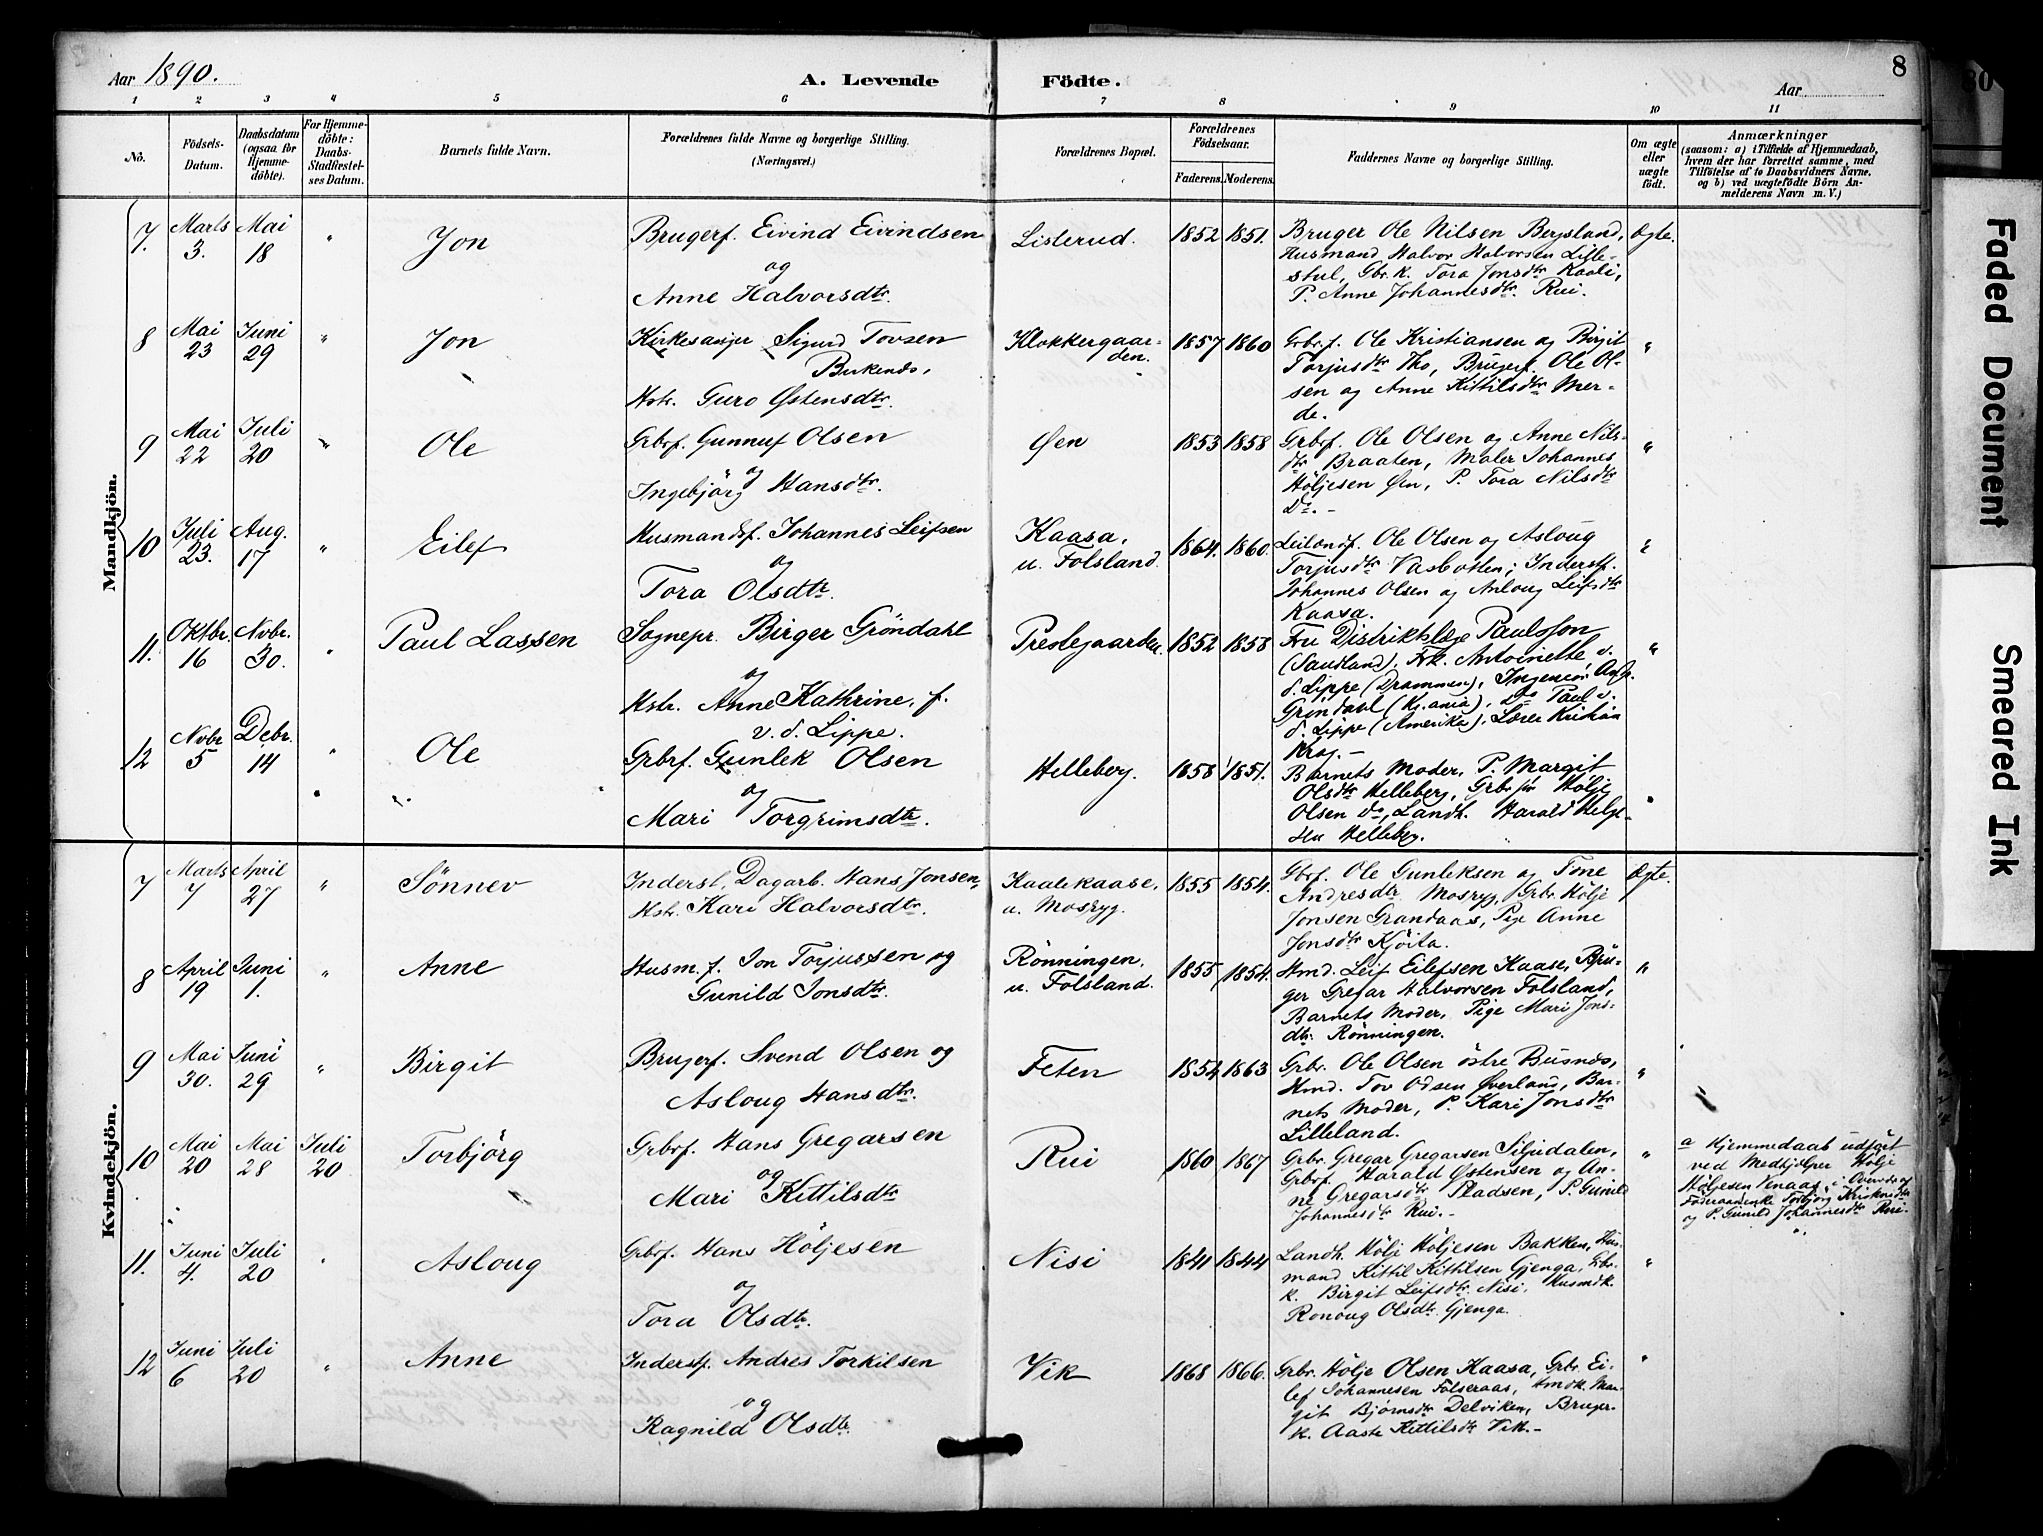 Aar 1890.
A. Levende Födte.
8
Aar
1 2 3 4 5 6 7 8 9 10 11
No.
Födsels-Datum.
Daabsdatum (ogsaa for Hjemmedöbte).
For Hjemmedöbte: Daabs-Stadfæstelses Datum.
Barnets fulde Navn.
Forældrenes fulde Navne og borgerlige Stilling. (Næringsvei.)
Forældrenes Bopæl.
Forældrenes Födselsaar.
Faderens. Moderens.
Faddernes Navne og borgerlige Stilling.
Om ægte eller uægte födt.
Anmærkninger
(saasom: a) i Tilfælde af Hjemmedaab,
hvem der har forrettet samme, med
Tilföielse af to Daabsvidners Navne.
og b) ved uægtefödte Börn An-
melderens Navn m. V.)
Mandkjön.
7. Marts 3. Mai 18 " Jon
Brugerf. Eivind Eivindsen
og
Anne Halvorsdtr.
Listerud. 1852 1851.
Bruger Ole Nilsen Bergsland,
Husmand Halvor Halvorsen Lille-
stul, Gbr. k. Tora Jonsdtr Kaali,
P. Anne Johannesdtr. Rui.
Ægte.
8 Mai 23 Juni 29 " Jon
Kirkesanger Sigurd Tovsen
Birkenes,
Hstr. Guro Østensdtr.
Klokkergaar-
den. 1857 1860
Grbrf. Ole Kristiansen og Birgit
Torjusdtr Tho, Brugerf. Ole Ol-
sen og Anne Kittilsdtr Mer-
de.
"
9 Mai 22 Juli 20 " Ole
Grbrf. Gunnuf Olsen
og
Ingebjörg Hansdtr.
Øen 1853 1858
Grbrf. Ole Olsen og Anne Nils-
dtr Braaten, Maler Johannes
Höljesen Øen, P. Tora Nilsdtr
Do. –
"
10 Juli 23. Aug. 17 " Eilef
Husmandsf. Johannes Leifsen
og
Tora Olsdtr.
Kaasa,
u. Folsland. 1864. 1860.
Leilændf. Ole Olsen og Asloug
Torjusdtr Vasbotten; Inderstf.
Johannes Olsen og Asloug Leifsdtr
Kaasa.
11. Oktbr. 16 Novbr. 30. " Paul Lassen
Sognepr. Birger Gröndahl
og
Hstr. Anne Kathrine, f.
v. d. Lippe.
Prestegaarden. 1852 1858
Fru Distriktslæge Paulsson
(Saudland), Frk. Antoinette v.
d. Lippe (Drammen), Ingeniör
Gröndahl (Kr.ania), Do Paul v.
d. Lippe (Amerika), Lærer Kristian
Krag. –
"
12 Novbr 5 Debr. 14 " Ole
Grbrf. Gunlek Olsen
og
Mari Torgrimsdtr.
Helleberg. 1858 1851.
Barnets Moder, P. Margit
Olsdtr Helleberg, Grbr
Hölje
Olsen do, Landh. Harald Helge-
sen Helleberg.
"
Kvindekjön.
7 Marts 7 April 27 " Sönnev
Inderst, Dagarb. Hans Jonsen,
Hstr. Kari Halvorsdtr.
Kaalekaase,
u. Mosryg. 1855 1854.
Gbrf. Ole Gunleksen og Tone
Andresdtr Mosryg, Grbr. Hölje
Jonsen Grandaas, Pige Anne
Jonsdtr Kjöita.
Ægte.
8 April 19 Juni 1. " Anne
Husm. f. Jon Torjussen og
Gunild Jonsdtr.
Rönningen,
u. Folsland. 1855 1854.
Hmd. Leif Eilefsen Kaase, Bru-
ger Gregar Halvorsen Folsland,
Barnets Moder, Pige Mari Jons-
dtr. Rönningen.
"
9 Mai 30. Juni 29 " Birgit
Brugerf. Svend Olsen og
Asloug Hansdtr.
Feten 1854 1863
Grbr. Ole Olsen östre Busnes,
Hmd. Tov Odsen Øverland, Bar-
nets Moder, P. Kari Jonsdtr
Lilleland.
"
10 Mai 20 Mai 28 Juli 20 Torbjörg
Grbrf. Hans Gregarsen
og
Mari Kittilsdtr
Rui 1860 1867
Grbr. Gregar Gregarsen Siljudalen,
Grbrf. Harald Østensen og An-
ne Gregarsdtr Pladsen, P. Gunild
Johannesdtr Rui. –
"
a Hjemmedaab udfört
ved Medhjelper Hölje
Höljesen Knaas; Overv. af
Föderaadsenke Torbjörg
og P. Gunild Johannesdtr Rui.
11. Juni 4. Juli 20 " Asloug
Grbrf. Hans Höljesen
og
Tora Olsdtr.
Nisi 1841 1844
Landh. Hölje Höljesen Bakken, Hus-
mand Kittil Kittilsen Gjenga, Grbr.
k. Birgit Leifsdtr. Nisi, Husmdk.
Ronoug Olsdtr. Gjenga.
"
12 Juni 6 Juli 20 " Anne
Inderstf. Andres Torkilsen
og
Ragnild Olsdtr.
Vik 1868 1866.
Grbr. Hölje Olsen Kaasa, Grbr. Ei-
lef Johannesen Folseraas, Hmdk. Mar-
git Björnsdtr Delviken, Bruger-
k. Aaste Kittilsdtr Vik. –
"
Faded Document
Smeared Ink